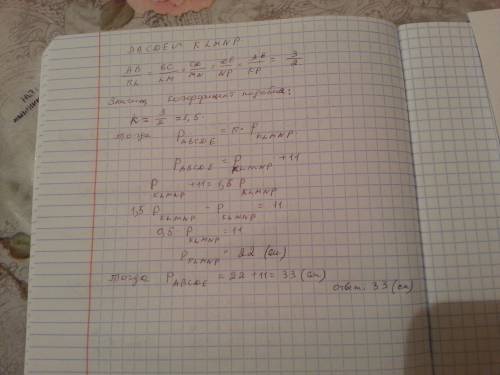 ABCDE и KLMNP
AB/KL = BC/LM = CD/MN = DE/NP = AE/KP = 3/2
Значит коэффициент подобия:
K = 3/2 = 1,5.
тогда P ABCDE = K · P KLMNP
P ABCDE = P KLMNP + 11
P KLMNP + 11 = 1,5 P KLMNP
1,5 P KLMNP - P KLMNP = 11
0,5 P KLMNP = 11
P KLMNP = 22 (см)
тогда P ABCDE = 22 + 11 = 33 (см)
ответ. 33 (см)